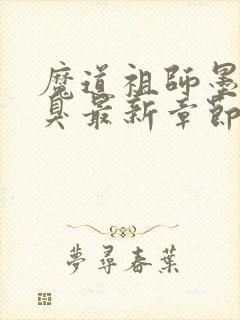 魔道祖師墨
臭最新章節
夢尋春葉